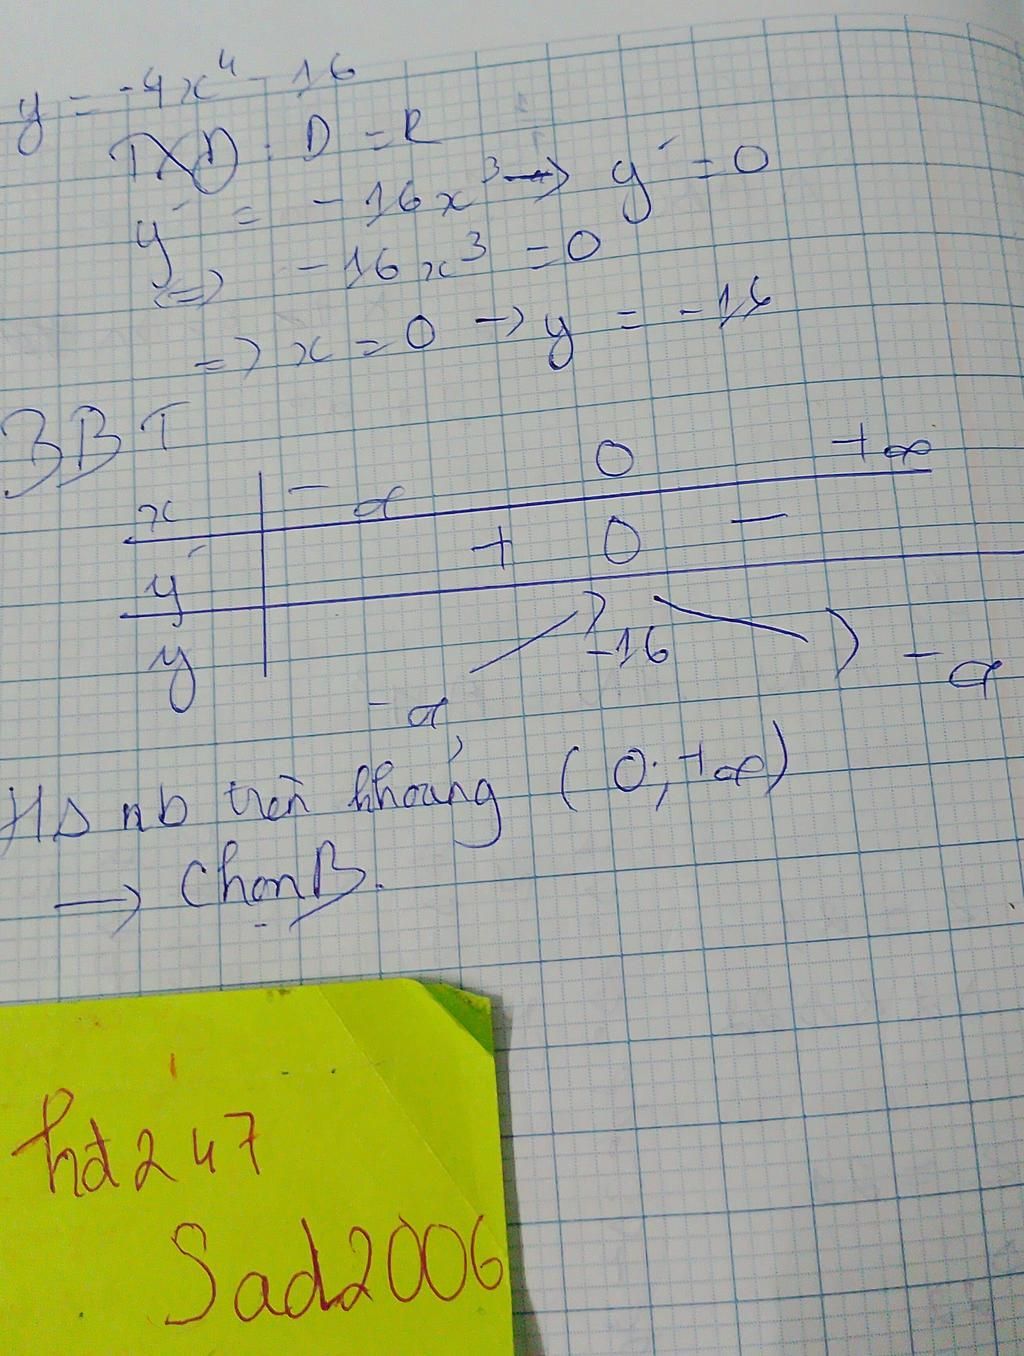 y = -4x⁴ - 16
TXD: D = R
y' = -16x³ → y' = 0
=> -16x³ = 0
=> x = 0 → y = -16
BBT
x -∞ 0 +∞
y' + 0 -
y -∞ -16 -∞
HS nb trên khoảng (0; +∞)
→ Chọn B.
hd247
Sad2006